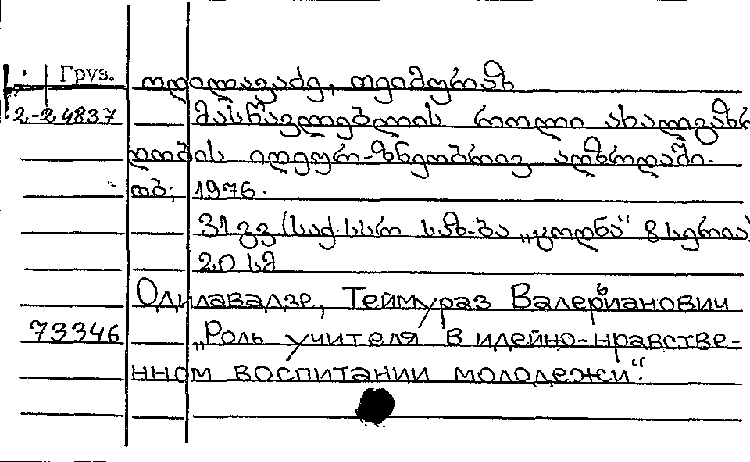 Груз. ოდილავაძე, თეიმურაზ
2-24837 მასწავლებლის როლი ახალგაზრ
დობის იდეურ-ზნეობრივ აღზრდაში.
თბ; 1976.
31 გვ (საქ. სსრ საზ-ბა „ცოდნა“ 8 სერია
20 სმ
Одилавадзе, Теймураз Валерианович
73346 „Роль учителя в идейно-нравстве-
нном воспитании молодежи“.